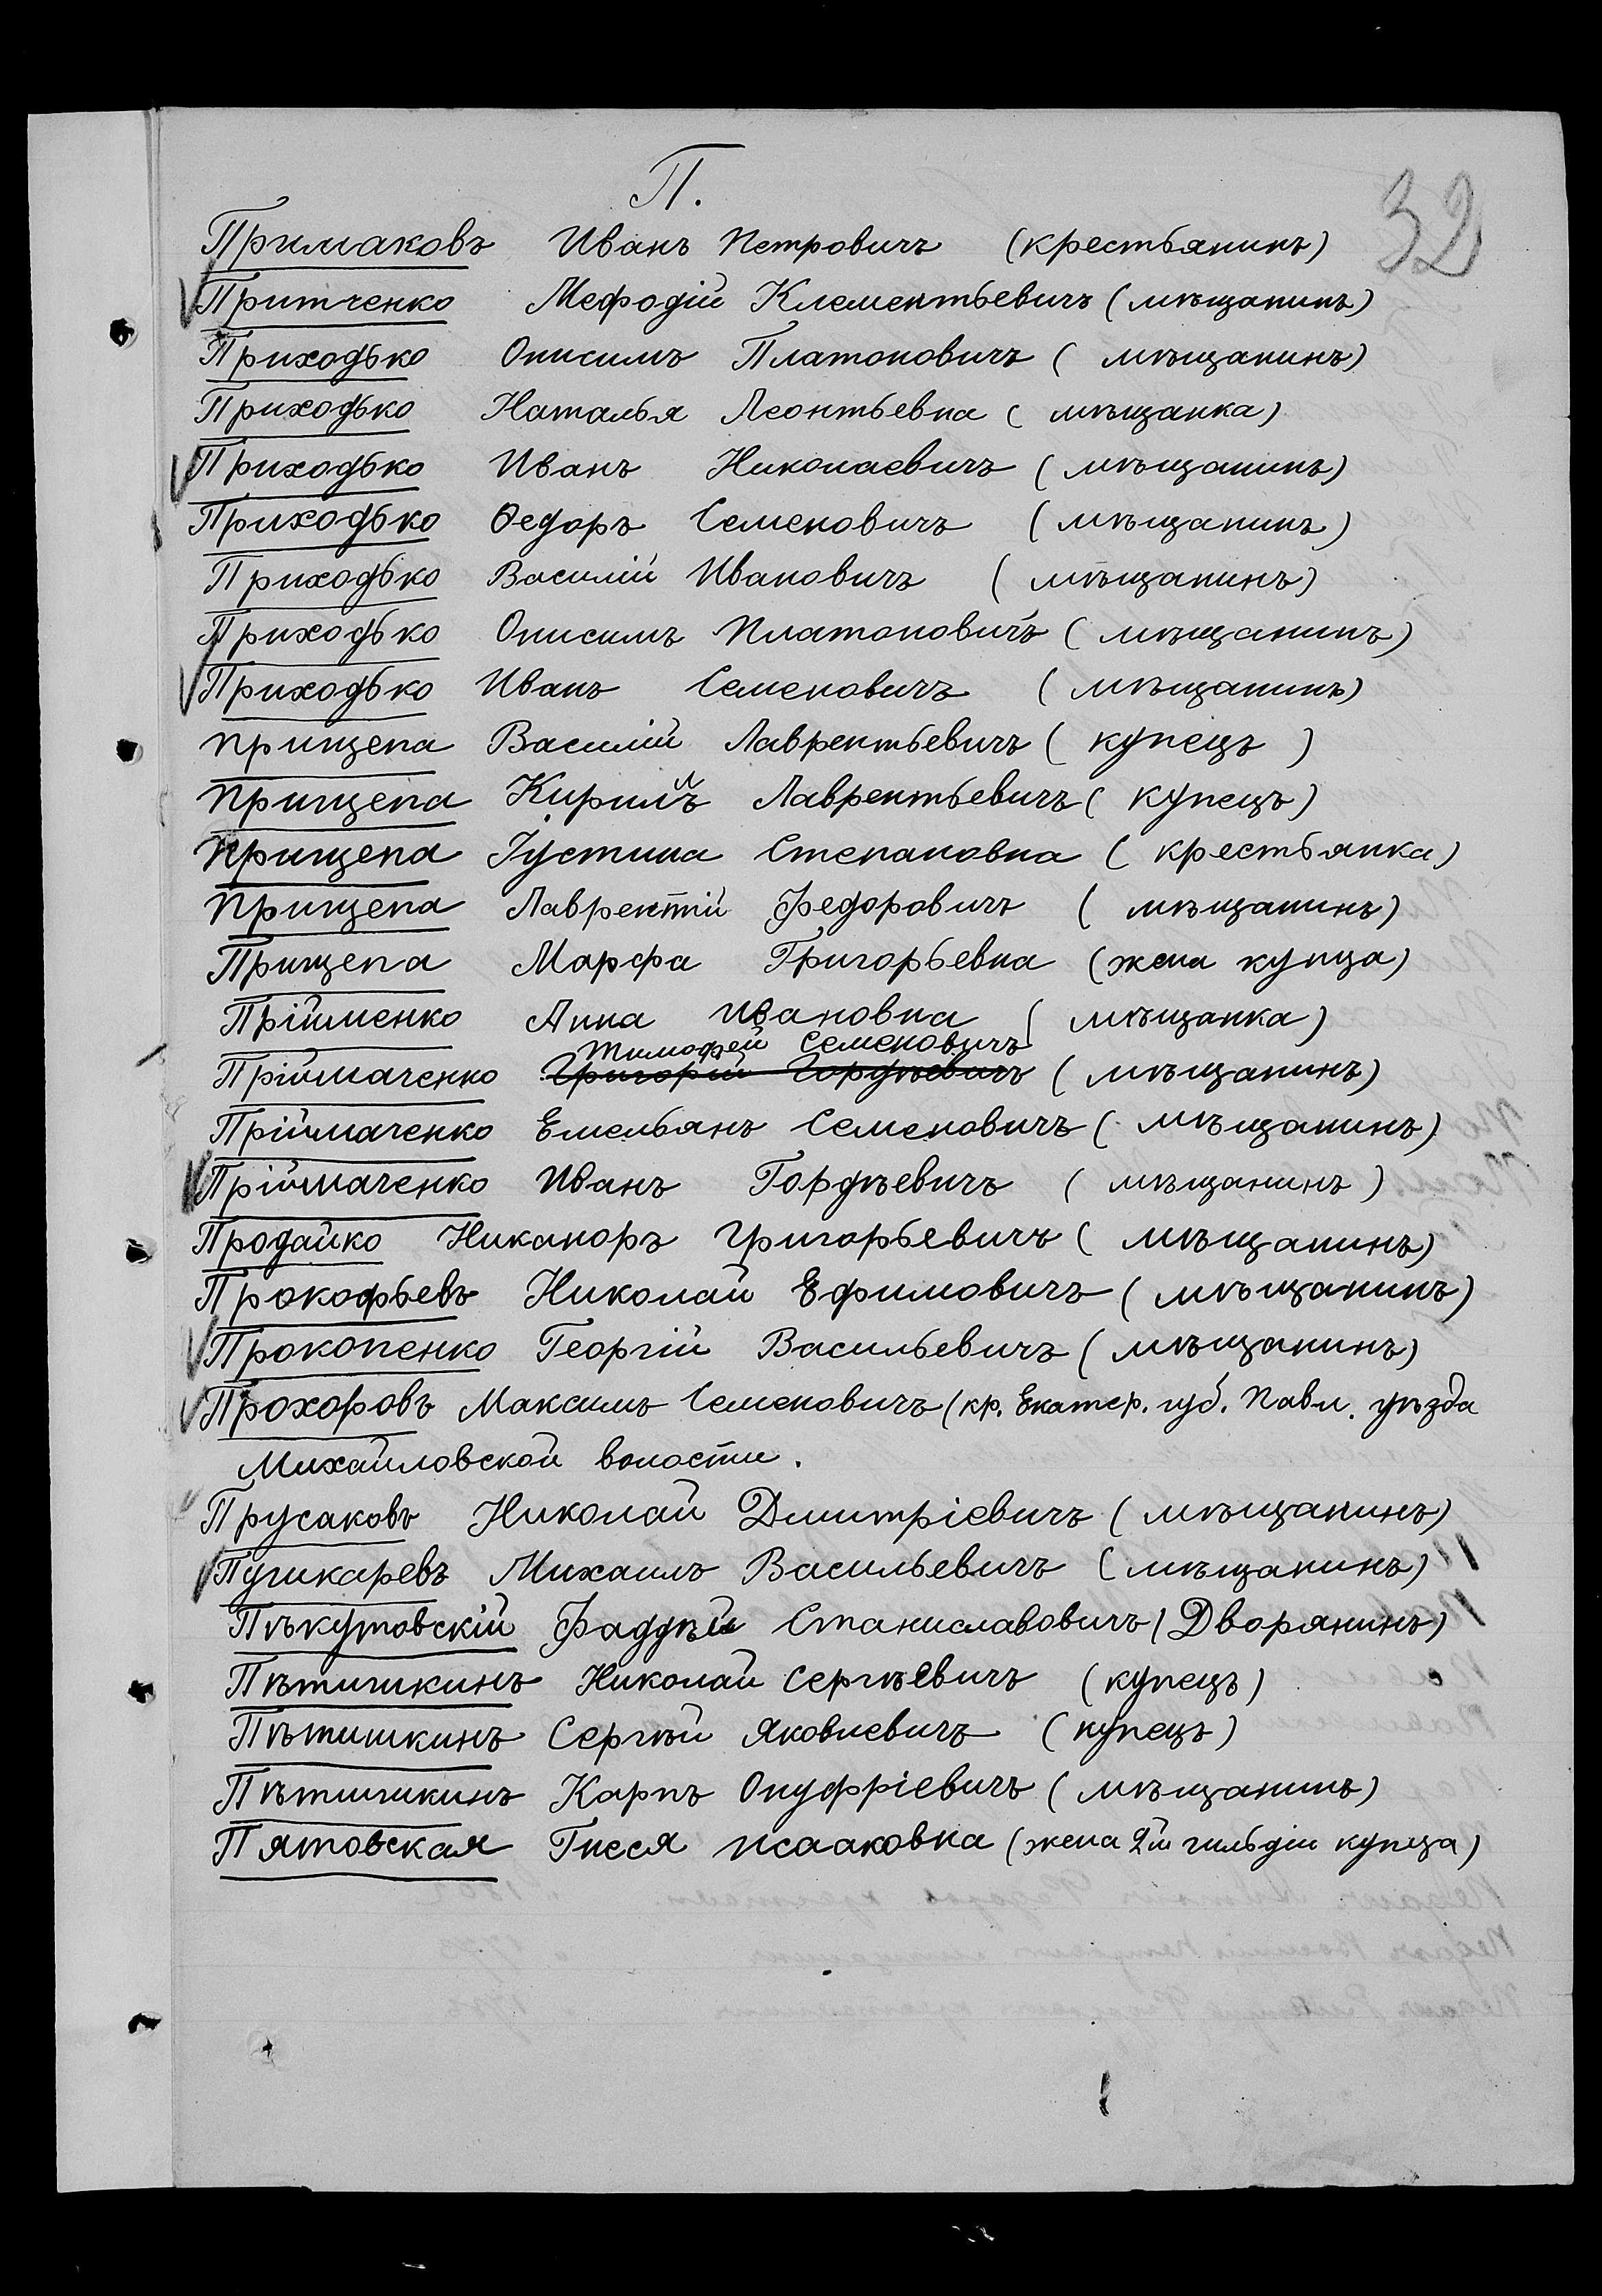 П.
32
Примаковъ Иванъ Петровичъ (крестьянинъ)
Притченко Мефодій Клементьевичъ (мѣщанинъ)
Приходько Онисимъ Платоновичъ (мѣщанинъ)
Приходько Наталья Леонтьевна (мѣщанка)
Приходько Иванъ Николаевичъ (мѣщанинъ)
Приходько Ѳедоръ Семеновичъ (мѣщанинъ)
Приходько Василій Ивановичъ (мѣщанинъ)
Приходько Онисимъ Платоновичъ (мѣщанинъ)
Приходько Иванъ Семеновичъ (мѣщанинъ)
Прищепа Василій Лаврентьевичъ (купецъ)
Прищепа Кирилъ Лаврентьевичъ (купецъ)
Прищепа Іустина Степановна (крестьянка)
Прищепа Лаврентій Федоровичъ (мѣщанинъ)
Прищепа Марфа Григорьевна (жена купца)
Прійменко Анна Ивановна (мѣщанка)
Тимофей Семеновичъ
Пріймаченко Григорій Гордѣевичъ (мѣщанинъ)
Пріймаченко Емельянъ Семеновичъ (мѣщанинъ)
Пріймаченко Иванъ Гордѣевичъ (мѣщанинъ)
Продайко Никаноръ Григорьевичъ (мѣщанинъ)
Прокофьевъ Николай Ефимовичъ (мѣщанинъ)
Прокопенко Георгій Васильевичъ (мѣщанинъ)
Прохоровъ Максимъ Семеновичъ (кр. Екатер. губ. Павл. уѣзда
Михайловской волости.
Прусаковъ Николай Дмитріевичъ (мѣщанинъ)
Пушкаревъ Михаилъ Васильевичъ (мѣщанинъ)
Пѣкутовскій Фаддѣй Станиславовичъ (Дворянинъ)
Пѣтишкинъ Николай Сергѣевичъ (купецъ)
Пѣтишкинъ Сергѣй Яковлевичъ (купецъ)
Пѣтишкинъ Карпъ Онуфріевичъ (мѣщанинъ)
Пятовская Гнеся Исааковна (жена 2й гильдіи купца)